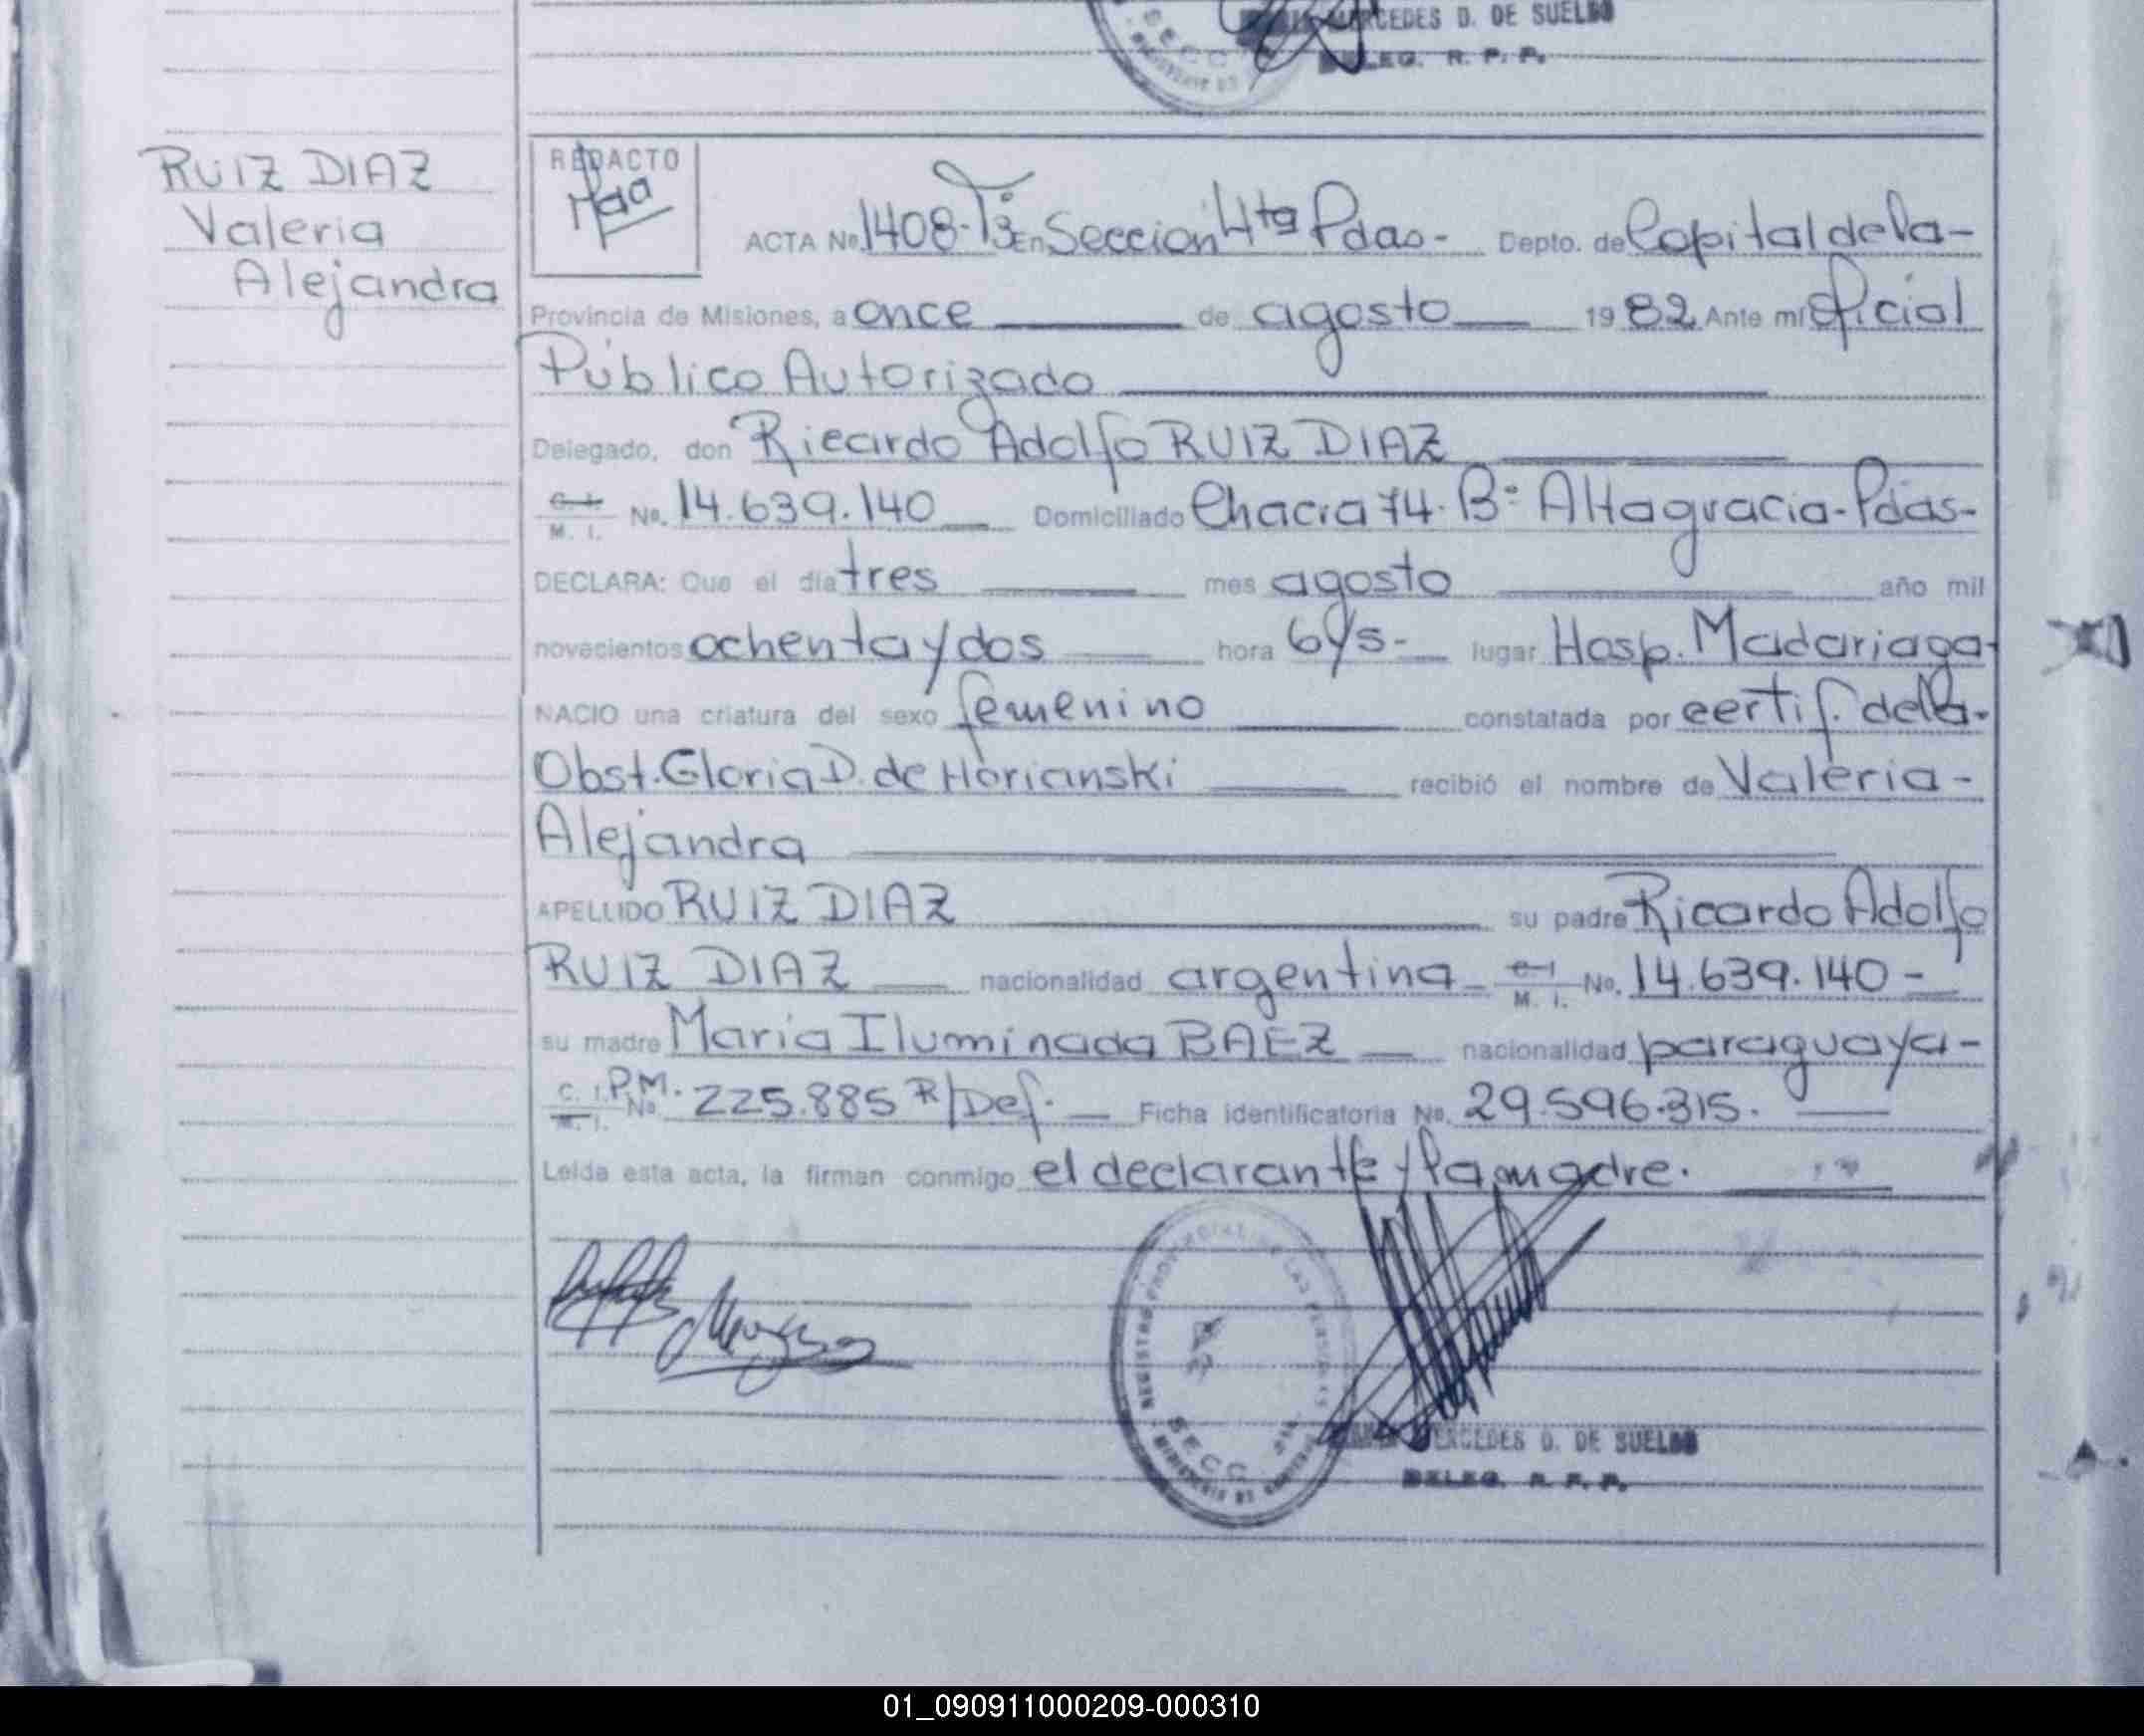 MERCEDES D. DE SUELDO
DELEG. R. P. P.
RUIZ DIAZ
Valeria
Alejandra
REDACTO
ACTA No. 1408-Tº 3º En Sección 4ta Pdas- Depto. de Capital de la-
Provincia de Misiones, a once de agosto 1982 Ante mí oficial
Público Autorizado
Delegado, don Ricardo Adolfo RUIZ DIAZ
C. I. M. I. No. 14.639.140 Domiciliado Chacra 74. Bº Altagracia-Pdas-
DECLARA: Que el día tres mes agosto año mil
novecientos ochenta y dos hora 6 y 5- lugar Hosp. Madariaga-
NACIO una criatura del sexo femenino constatada por certif. de la-
Obst. Gloria D. de Horianski recibió el nombre de Valeria-
Alejandra
APELLIDO RUIZ DIAZ su padre Ricardo Adolfo
RUIZ DIAZ nacionalidad argentina C. I. M. I. No. 14.639.140-
su madre María Iluminada BAEZ nacionalidad paraguaya-
C. I. M. I. P.M. No. 225.885 R/Def. Ficha identificatoria No. 29.596.315.
Leída esta acta, la firman conmigo el declarante y la madre.
REGISTRO PROVINCIAL DE LAS PERSONAS
SECC
MINISTERIO DE GOBIERNO
MERCEDES D. DE SUELDO
DELEG. R. P. P.
01_090911000209-000310